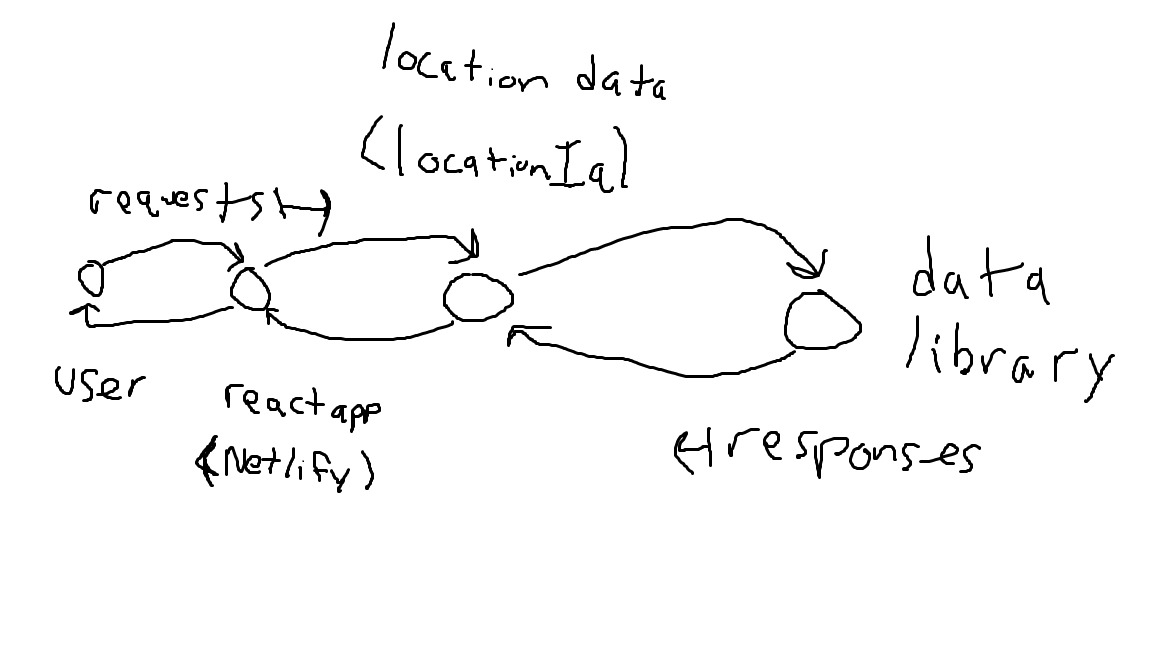 location data
(locationIq)
requests
user
react app
(Netlify)
data
library
responses